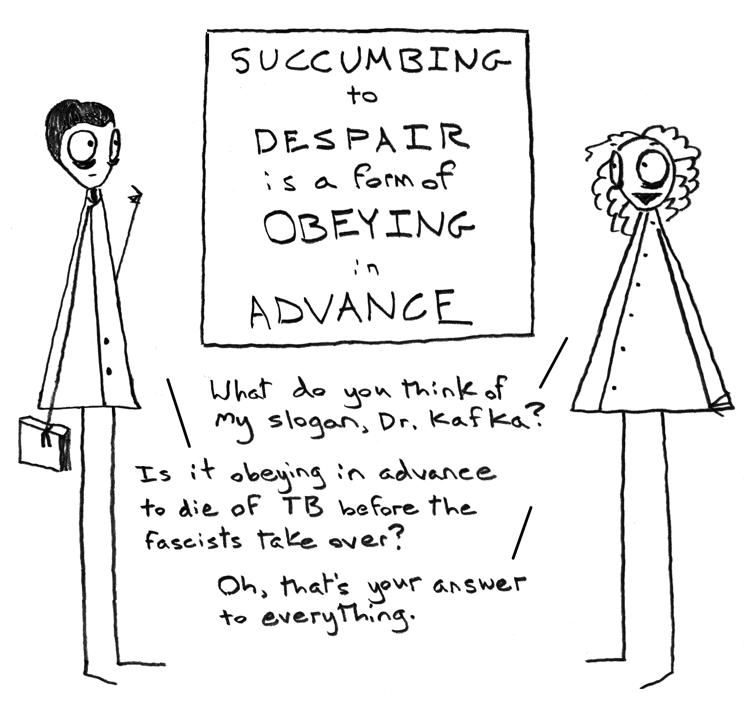 SUCCUMBING
to
DESPAIR
is a form of
OBEYING
in
ADVANCE
What do you think of
my slogan, Dr. Kafka?
Is it obeying in advance
to die of TB before the
fascists take over?
Oh, that's your answer
to everything.